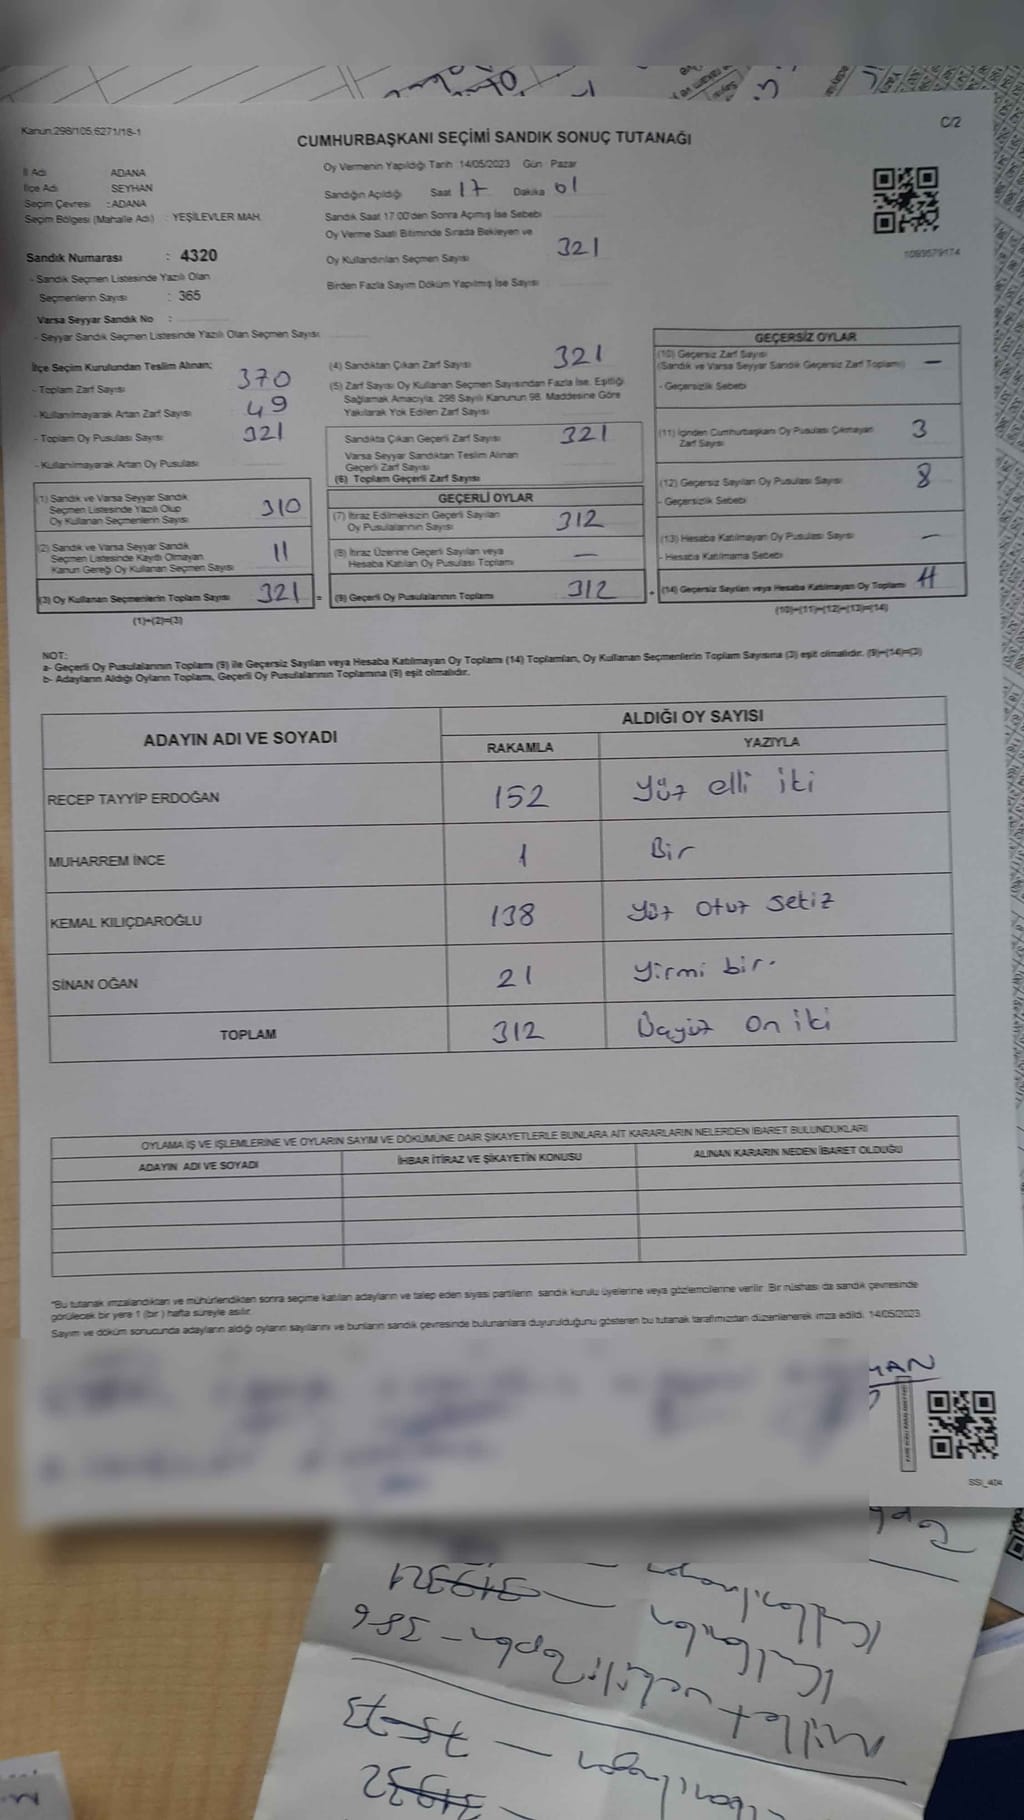 Kanun:298/105;6271/18-1
C/2
CUMHURBAŞKANI SEÇİMİ SANDIK SONUÇ TUTANAĞI
İl Adı ADANA
İlçe Adı SEYHAN
Seçim Çevresi : ADANA
Seçim Bölgesi (Mahalle Adı) : YEŞİLEVLER MAH.
Sandık Numarası : 4320
- Sandık Seçmen Listesinde Yazılı Olan
Seçmenlerin Sayısı : 365
Varsa Seyyar Sandık No :
- Seyyar Sandık Seçmen Listesinde Yazılı Olan Seçmen Sayısı:
Oy Vermenin Yapıldığı Tarih 14/05/2023 Gün Pazar
Sandığın Açıldığı Saat 17 Dakika 01
Sandık Saat 17:00'den Sonra Açımış İse Sebebi
Oy Verme Saati Bitiminde Sırada Bekleyen ve
Oy Kullandırılan Seçmen Sayısı 321
Birden Fazla Sayım Döküm Yapılmış İse Sayısı
1093579174
İlçe Seçim Kurulundan Teslim Alınan;
- Toplam Zarf Sayısı 370
- Kullanılmayarak Artan Zarf Sayısı 49
- Toplam Oy Pusulası Sayısı 321
- Kullanılmayarak Artan Oy Pusulası
(1) Sandık ve Varsa Seyyar Sandık
Seçmen Listesinde Yazılı Olup
Oy Kullanan Seçmenlerin Sayısı 310
(2) Sandık ve Varsa Seyyar Sandık
Seçmen Listesinde Kayıtlı Olmayan
Kanun Gereği Oy Kullanan Seçmen Sayısı 11
(3) Oy Kullanan Seçmenlerin Toplam Sayısı 321 =
(1)+(2)=(3)
(4) Sandıktan Çıkan Zarf Sayısı 321
(5) Zarf Sayısı Oy Kullanan Seçmen Sayısından Fazla İse, Eşitliği
Sağlamak Amacıyla, 298 Sayılı Kanunun 98. Maddesine Göre
Yakılarak Yok Edilen Zarf Sayısı
Sandıkta Çıkan Geçerli Zarf Sayısı 321
Varsa Seyyar Sandıktan Teslim Alınan
Geçerli Zarf Sayısı
(6) Toplam Geçerli Zarf Sayısı
GEÇERLİ OYLAR
(7) İtiraz Edilmeksizin Geçerli Sayılan
Oy Pusulalarının Sayısı 312
(8) İtiraz Üzerine Geçerli Sayılan veya
Hesaba Katılan Oy Pusulası Toplamı —
(9) Geçerli Oy Pusulalarının Toplamı 312 +
GEÇERSİZ OYLAR
(10) Geçersiz Zarf Sayısı
(Sandık ve Varsa Seyyar Sandık Geçersiz Zarf Toplamı) —
- Geçersizlik Sebebi
(11) İçinden Cumhurbaşkanı Oy Pusulası Çıkmayan
Zarf Sayısı 3
(12) Geçersiz Sayılan Oy Pusulası Sayısı 8
- Geçersizlik Sebebi
(13) Hesaba Katılmayan Oy Pusulası Sayısı —
- Hesaba Katılmama Sebebi
(14) Geçersiz Sayılan veya Hesaba Katılmayan Oy Toplamı 11
(10)+(11)+(12)+(13)=(14)
NOT:
a- Geçerli Oy Pusulalarının Toplamı (9) ile Geçersiz Sayılan veya Hesaba Katılmayan Oy Toplamı (14) Toplamları, Oy Kullanan Seçmenlerin Toplam Sayısına (3) eşit olmalıdır. (9)+(14)=(3)
b- Adayların Aldığı Oyların Toplamı, Geçerli Oy Pusulalarının Toplamına (9) eşit olmalıdır.
ADAYIN ADI VE SOYADI ALDIĞI OY SAYISI
RAKAMLA YAZIYLA
RECEP TAYYİP ERDOĞAN 152 Yüz elli iki
MUHARREM İNCE 1 Bir
KEMAL KILIÇDAROĞLU 138 Yüz otuz sekiz
SİNAN OĞAN 21 Yirmi bir.
TOPLAM 312 Üçyüz On iki
OYLAMA İŞ VE İŞLEMLERİNE VE OYLARIN SAYIM VE DÖKÜMÜNE DAİR ŞİKAYETLERLE BUNLARA AİT KARARLARIN NELERDEN İBARET BULUNDUKLARI
ADAYIN ADI VE SOYADI İHBAR İTİRAZ VE ŞİKAYETİN KONUSU ALINAN KARARIN NEDEN İBARET OLDUĞU
*Bu tutanak imzalandıktan ve mühürlendikten sonra seçime katılan adayların ve talep eden siyasi partilerin sandık kurulu üyelerine veya gözlemcilerine verilir. Bir nüshası da sandık çevresinde
görülecek bir yere 1 (bir) hafta süreyle asılır.
Sayım ve döküm sonucunda adayların aldığı oyların sayılarını ve bunların sandık çevresinde bulunanlara duyurulduğunu gösteren bu tutanak tarafımızdan düzenlenerek imza edildi. 14/05/2023
MAN
SSI_404
Millet vekili Topla - 386